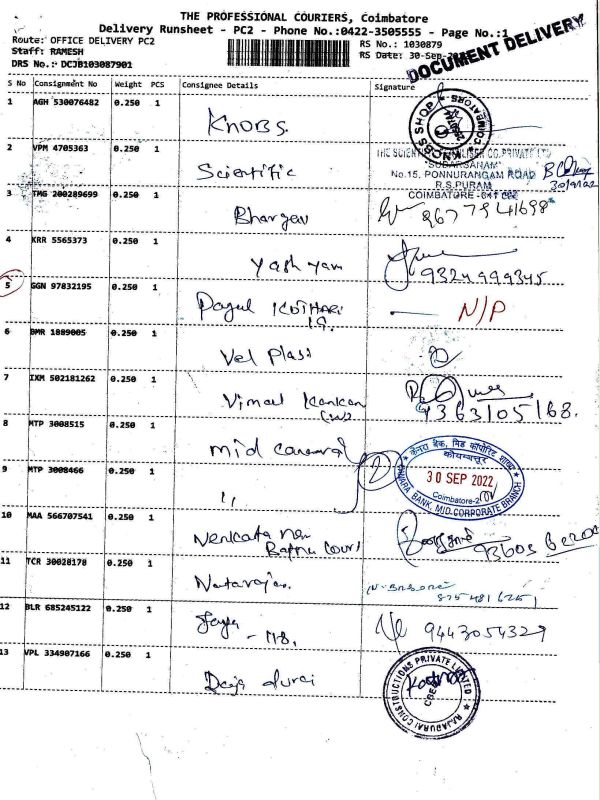 THE PROFESSIONAL COURIERS, Coimbatore
Delivery Runsheet - PC2 - Phone No.:0422-3505555 - Page No.:1
Route: OFFICE DELIVERY PC2
Staff: RAMESH
DRS No.: DCJB103087901
RS No.: 1030879
RS Date: 30-Sep-
DOCUMENT DELIVERY
S No Consignment No Weight PCS Consignee Details Signature
1 AGH 530076482 0.250 1 KNOBS.
KNOBS SHOP COIMBATORE
2 VPM 4705363 0.250 1 Scientific
THE SCIENTIFIC CO.PRIVATE LTD
"SUDARSANAM"
No.15, PONNURANGAM ROAD
R.S.PURAM
COIMBATORE
3 TMG 200289699 0.250 1 Bhargav
4 KRR 5565373 0.250 1 Yash yam 9324999345
5 GGN 97832195 0.250 1 Payal KOTHARI N/P
6 BMR 1889005 0.250 1 Vel Plass
7 IXR 502181262 0.250 1 Vimal 9363105168.
8 MTP 3008515 0.250 1 mid
9 MTP 3008466 0.250 1 ,, 2
केनरा बैंक, मिड कॉर्पोरेट शाखा
कोयम्बत्तूर
30 SEP 2022
Coimbatore-2
CANARA BANK, MID CORPORATE BRANCH
10 MAA 566707541 0.250 1 Venkata
11 TCR 30028178 0.250 1 Natarajan
12 BLR 685245122 0.250 1 Jaya 9443054329
13 VPL 334907166 0.250 1 Raja durai
RAJADURAI CONSTRUCTIONS PRIVATE LIMITED